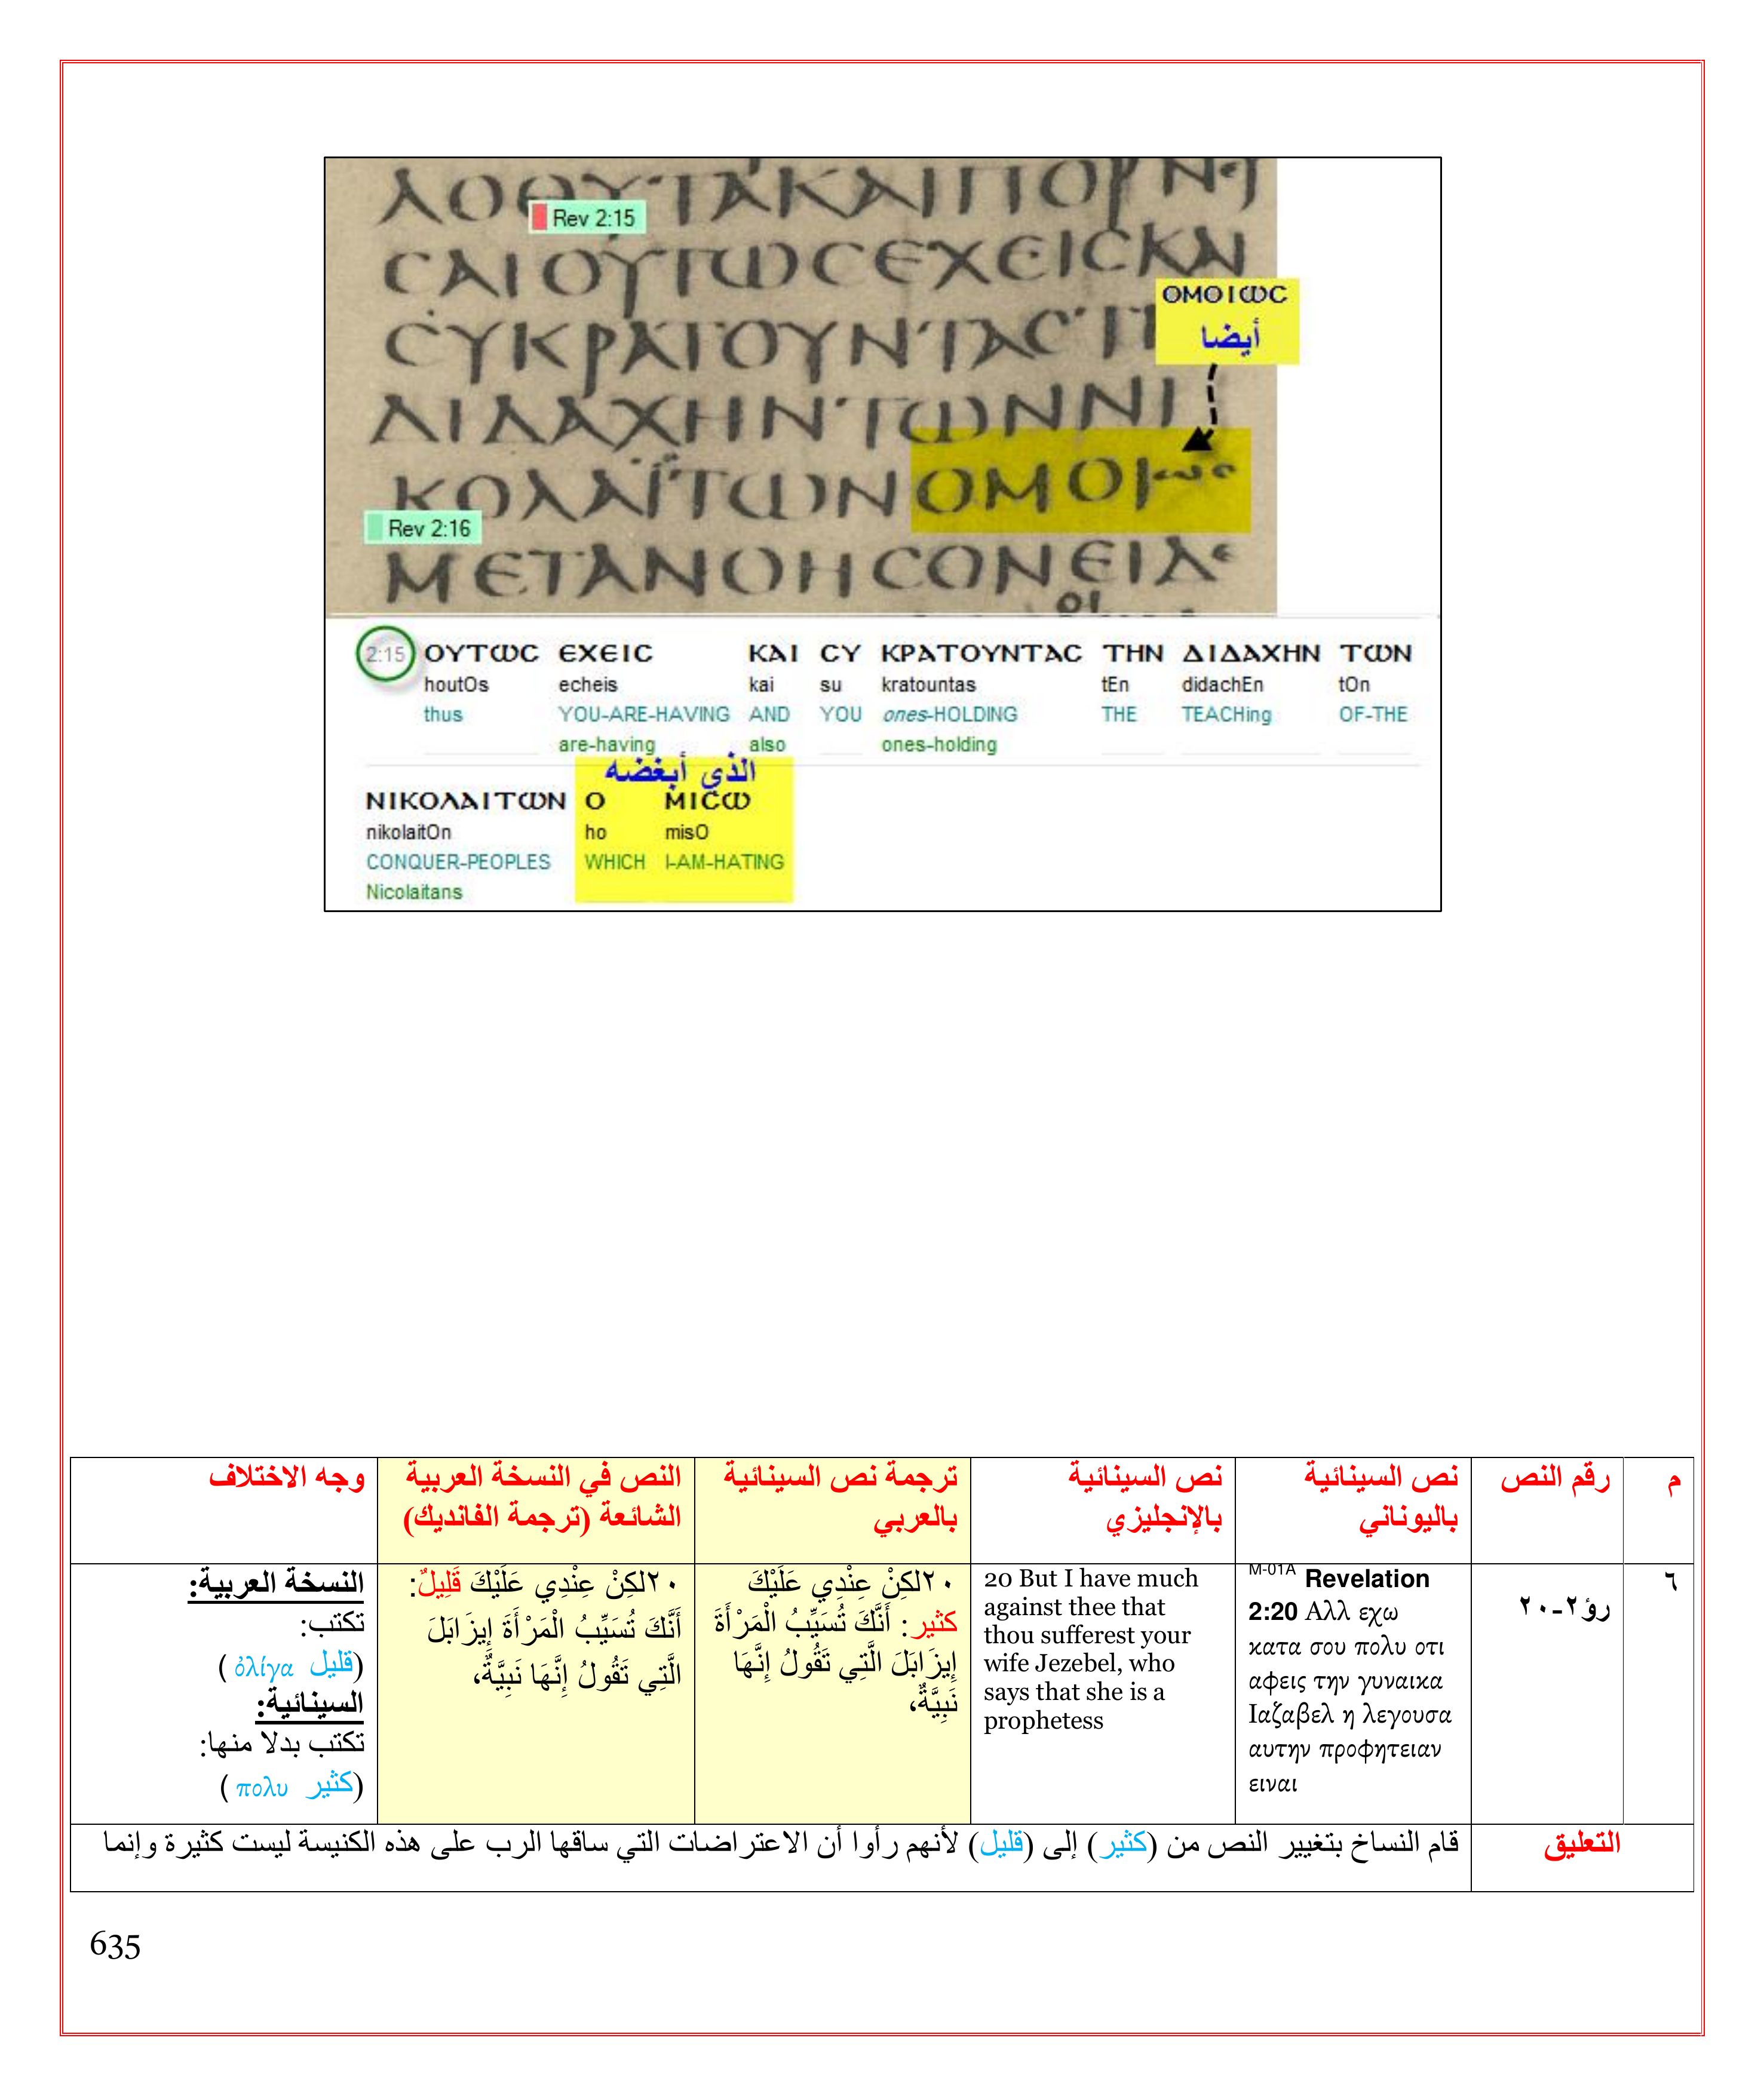 ΛΟΘΥΤΑΚΑΙΠΟΡΝΗ
Rev 2:15
CΑΙΟΥΤΩCΕΧΕΙCΚΑΙ
ΟΜΟΙΩC
أيضا
CΥΚΡΑΤΟΥΝΤΑCΤΗ
ΔΙΔΑΧΗΝΤΩΝΝΙ
ΚΟΛΑΪΤΩΝΟΜΟΙωc
Rev 2:16
ΜΕΤΑΝΟΗCΟΝΕΙΔε
2:15 ΟΥΤΩC ΕΧΕΙC ΚΑΙ CΥ ΚΡΑΤΟΥΝΤΑC ΤΗΝ ΔΙΔΑΧΗΝ ΤΩΝ
houtOs echeis kai su kratountas tEn didachEn tOn
thus YOU-ARE-HAVING AND YOU ones-HOLDING THE TEACHing OF-THE
are-having also ones-holding
الذي أبغضه
ΝΙΚΟΛΑΙΤΩΝ Ο ΜΙCΩ
nikolaitOn ho misO
CONQUER-PEOPLES WHICH I-AM-HATING
Nicolaitans
م
رقم النص
نص السينائية
باليوناني
نص السينائية
بالإنجليزي
ترجمة نص السينائية
بالعربي
النص في النسخة العربية
الشائعة (ترجمة الفانديك)
وجه الاختلاف
٦
رؤ٢-٢٠
M-01A Revelation
2:20 Αλλ εχω
κατα σου πολυ οτι
αφεις την γυναικα
Ιαζαβελ η λεγουσα
αυτην προφητειαν
ειναι
20 But I have much
against thee that
thou sufferest your
wife Jezebel, who
says that she is a
prophetess
٢٠لكِنْ عِنْدِي عَلَيْكَ
كثير: أَنَّكَ تُسَيِّبُ الْمَرْأَةَ
إِيزَابَلَ الَّتِي تَقُولُ إِنَّهَا
نَبِيَّةٌ،
٢٠لكِنْ عِنْدِي عَلَيْكَ قَلِيلٌ:
أَنَّكَ تُسَيِّبُ الْمَرْأَةَ إِيزَابَلَ
الَّتِي تَقُولُ إِنَّهَا نَبِيَّةٌ،
النسخة العربية:
تكتب:
(قليل ὀλίγα )
السينائية:
تكتب بدلا منها:
(كثير πολυ )
التعليق
قام النساخ بتغيير النص من (كثير) إلى (قليل) لأنهم رأوا أن الاعتراضات التي ساقها الرب على هذه الكنيسة ليست كثيرة وإنما
635